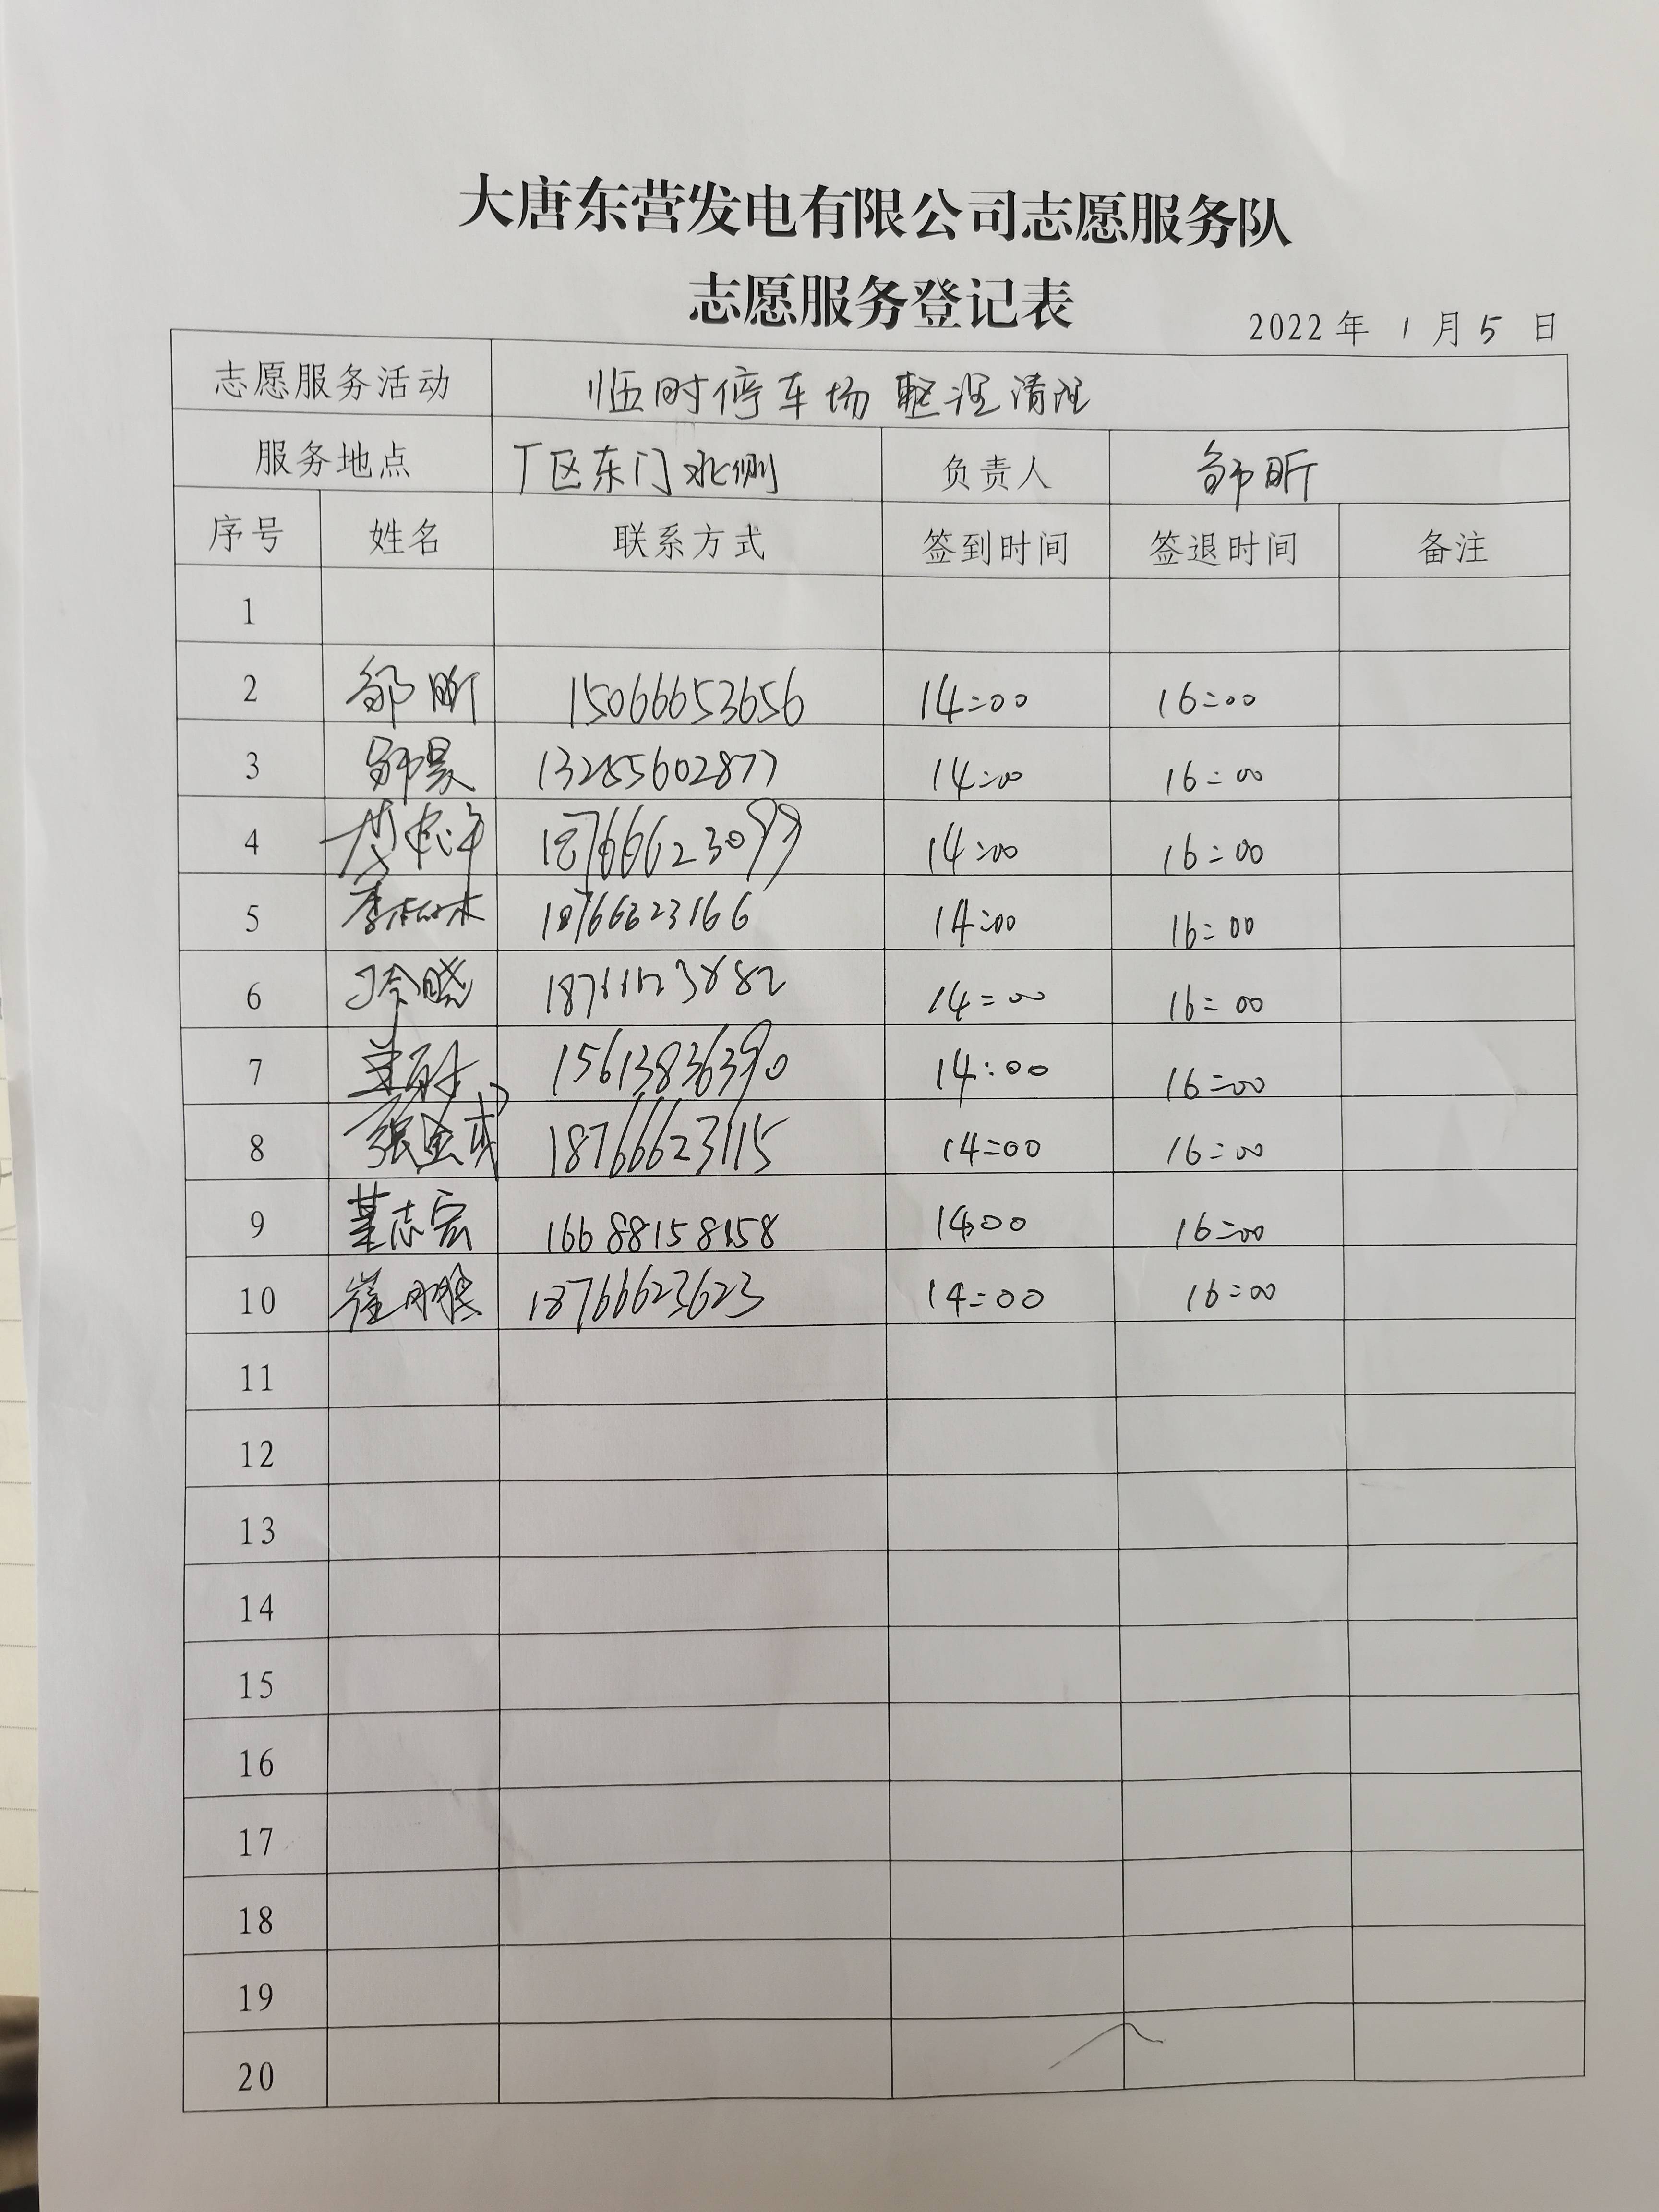 大唐东营发电有限公司志愿服务队
志愿服务登记表
2022年 1月5日
志愿服务活动 临时停车场 整理清理
服务地点 厂区东门北侧 负责人 邹昕
序号 姓名 联系方式 签到时间 签退时间 备注
1
2 邹昕 15066653656 14:00 16:00
3 邹昊 13255602877 14:00 16:00
4 18766623099 14:00 16:00
5 18766623166 14:00 16:00
6 14:00 16:00
7 15613836390 14:00 16:00
8 18766623115 14:00 16:00
9 董志宏 16688158158 14:00 16:00
10 崔鹏 18766623623 14:00 16:00
11
12
13
14
15
16
17
18
19
20